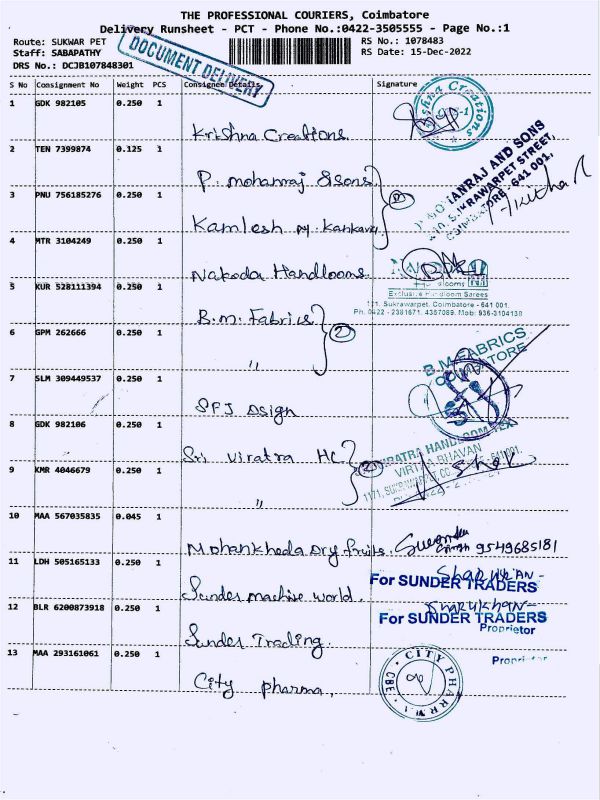 THE PROFESSIONAL COURIERS, Coimbatore
Delivery Runsheet - PCT - Phone No.:0422-3505555 - Page No.:1
Route: SUKWAR PET
RS No.: 1078483
Staff: SABAPATHY
RS Date: 15-Dec-2022
DRS No.: DCJB107848301
DOCUMENT DELIVERY
S No Consignment No Weight PCS Consignee Details Signature
1 GDK 982105 0.250 1
Krishna Creations
2 TEN 7399874 0.125 1
P. mohanraj & sons
3 PNU 756185276 0.250 1
Kamlesh
4 MTR 3104249 0.250 1
Nakoda Handlooms
5 KUR 528111394 0.250 1
B.m. Fabrics
6 GPM 262666 0.250 1
"
7 SLM 309449537 0.250 1
SFJ Dsign
8 GDK 982106 0.250 1
Sri Viratra HC
9 KMR 4046679 0.250 1
"
10 MAA 567035835 0.045 1
Mohankheda Dry fruits
9549685181
11 LDH 505165133 0.250 1
Sunder machine world
12 BLR 6200873918 0.250 1
Sunder Trading
13 MAA 293161061 0.250 1
City pharma
Krishna Creations
MOHANRAJ AND SONS
SUKRAWARPET STREET,
COIMBATORE - 641 001.
Exclusive Handloom Sarees
121, Sukrawarpet, Coimbatore - 641 001.
Ph. 0422 - 2381671, 4367089. Mob: 936-3104138
B.M. FABRICS
COIMBATORE
VIRATRA HANDLOOM
BHAVAN
For SUNDER TRADERS
For SUNDER TRADERS
Proprietor
Proprietor
CITY PHARMA
CBE